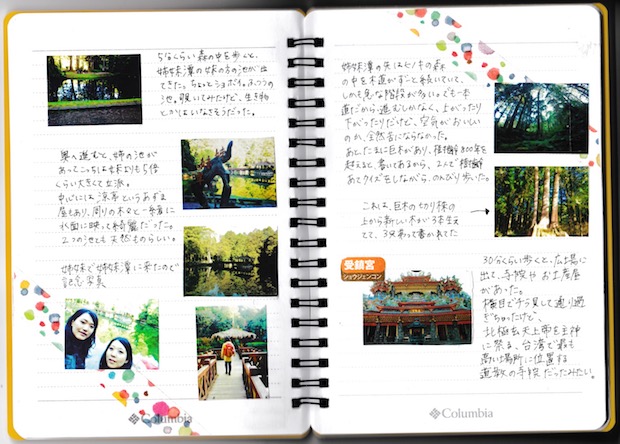 5分くらい森の中を歩くと、
姉妹潭の妹の方の池が出
てきた。ちょっとショボイ。ふつうの
池。覗いてみたけど、生き物
とかはいなさそうだった。
奥へ進むと、姉の池が
あってこっちは妹よりも5倍
くらい大きくて立派。
中心には涼亭というあずま
屋もあり、周りの木々と一緒に
水面に映って綺麗だった。
2つの池とも天然ものらしい。
姉妹で姉妹潭に来たので
記念写真
Columbia
姉妹潭の先はヒノキの森
の中を木道がずーと続いていて、
しかも急な階段が多い。でも一本
道だから、進むしかなく、上がったり
下がったりだけど、空気がおいしい
のか、全然苦にならなかった。
あと、たまに巨木があり、樹齢800年を
越えると、書いてあるから、2人で樹齢
あてクイズをしながら、のんびり歩いた。
これは、巨木の切り株の
上から新しい木が3本生え
てて、3兄弟って書かれてた
受鎮宮
ショウジェンゴン
30分くらい歩くと、広場に
出て、寺院やお土産屋
があった。
横目でチラ見して通り過
ぎちゃったけど、
北極玄天上帝を主神
に祭る、台湾で最も
高い場所に位置する
道教の寺院だったみたい。
Columbia